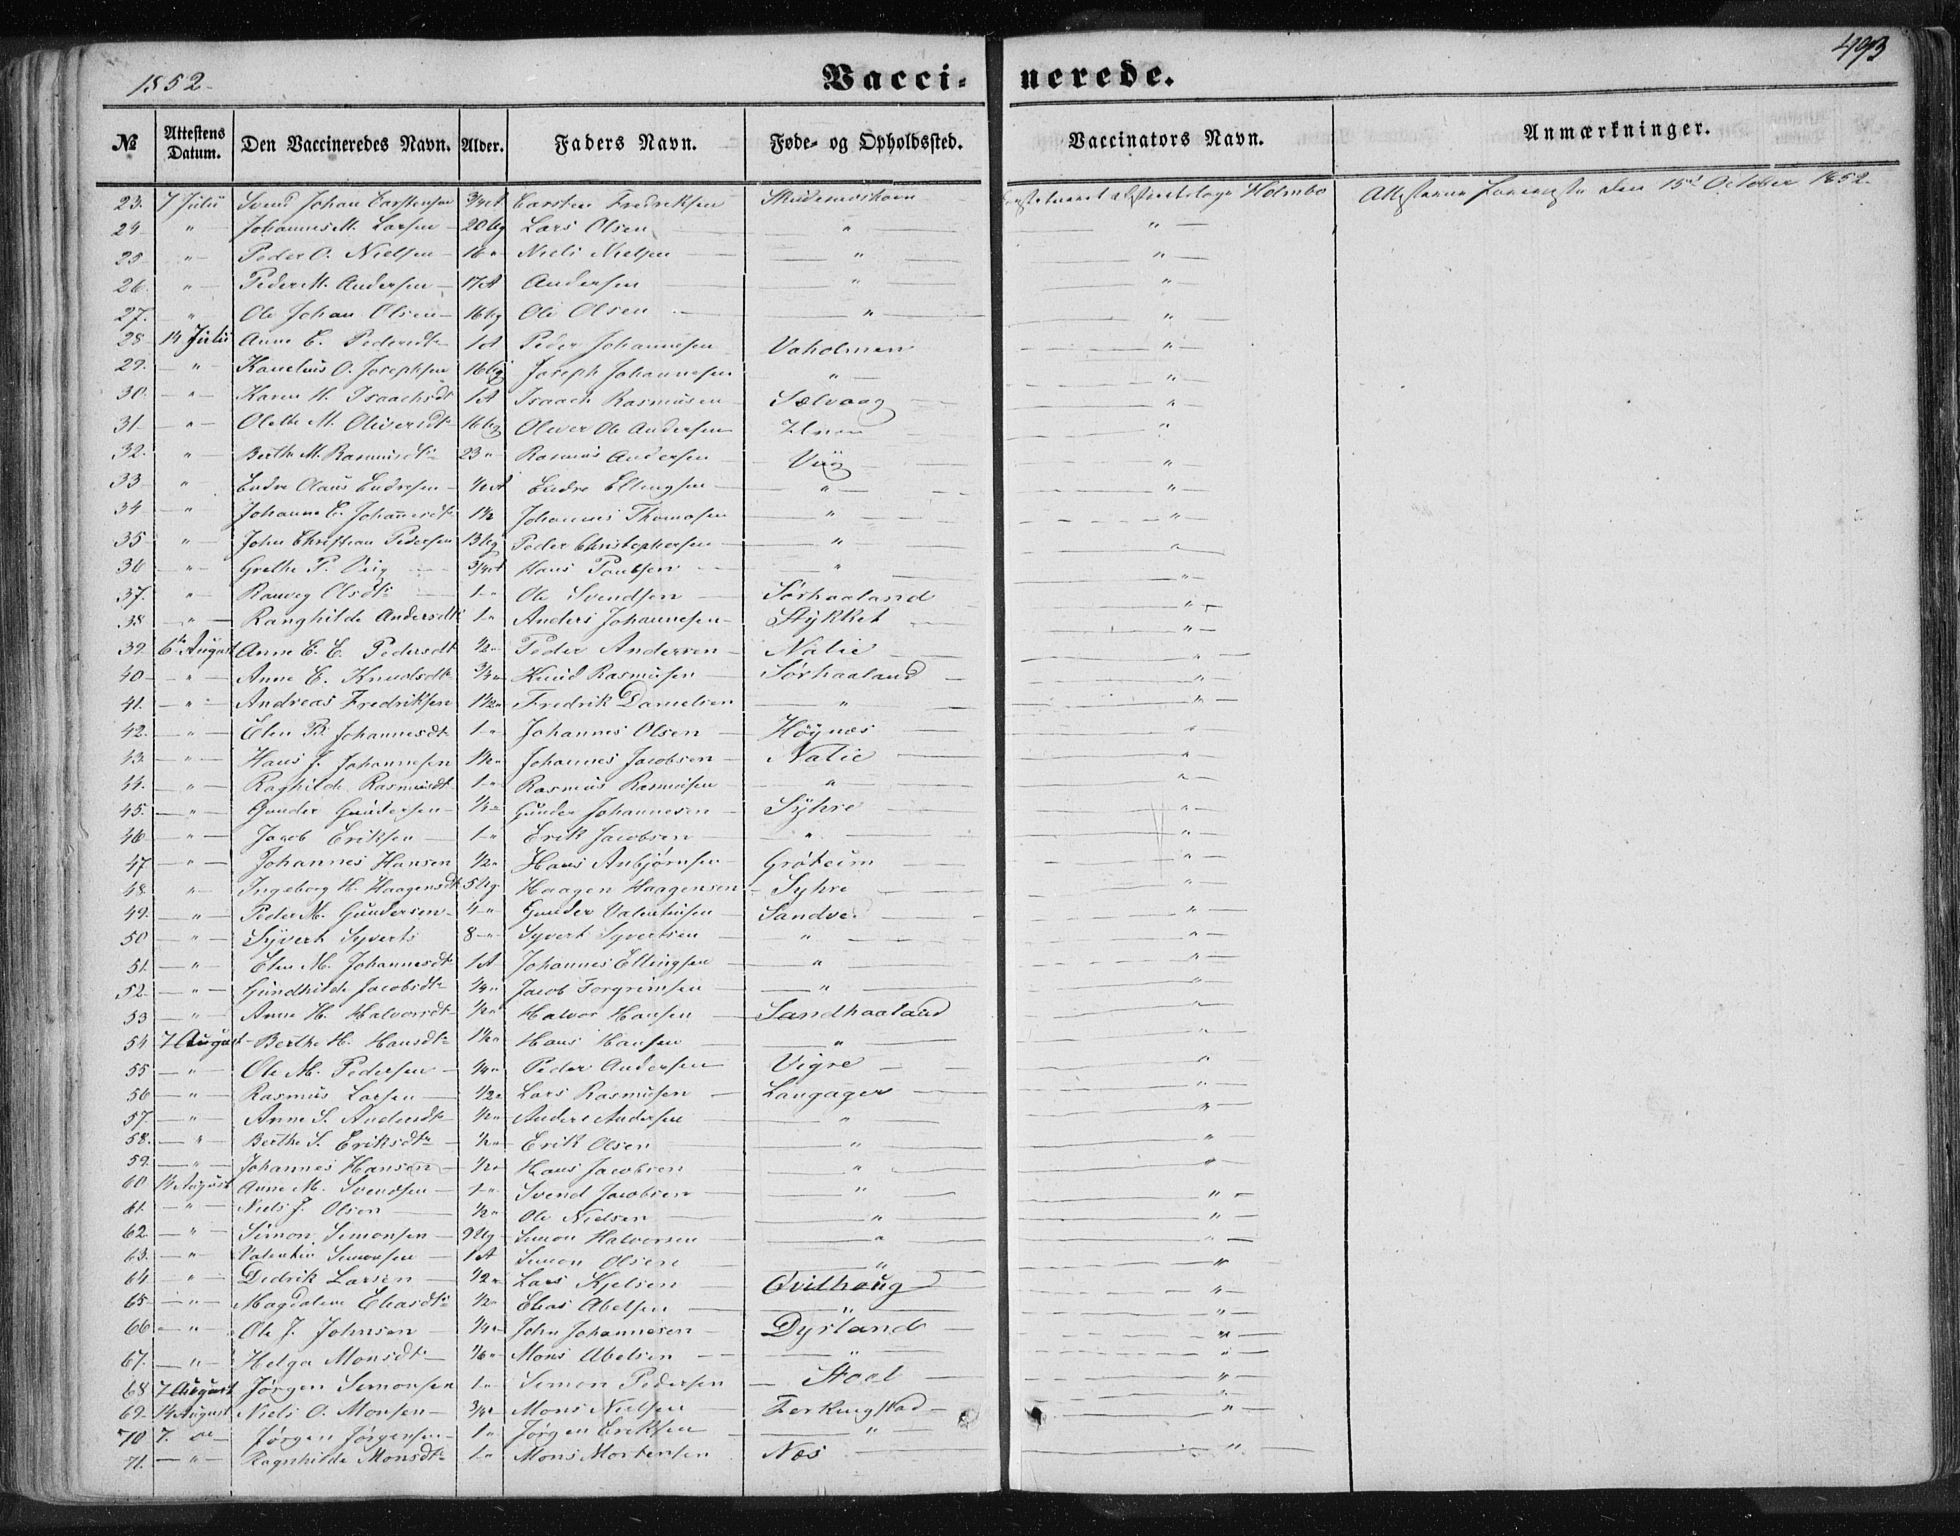 1852
493
Vacci-nerede.
№ Attestens Datum. Den Vaccineredes Navn. Alder. Faders Navn. Føde- og Opholdssted. Vaccinators Navn. Anmærkninger.
23. 7 Julii Svend Johan Carstensen 3/4 A Carsten Fredriksen Skudesneshavn Holmbo Attesterne den 15de October 1852.
24 " Johannes M. Larsen 20 Ug Lars Olsen " "
25 " Peder O. Nielsen 16 " Niels Nielsen " "
26. " Peder M. Andersen Andersen " "
27. " Ole Johan Olsen 16 Ug Ole Olsen " "
28 14 Julii Anne E. Pedersdtr 1 A Peder Johannesen Vaholmen "
29. " Kanelius O. Josephsen 16 Ug Joseph Johannesen " "
30. " Karen H. Isaachsdt 1 A Isaach Rasmusen Sælvaag "
31. " Olethe M. Oliversdtr 16 Ug Oliver Ole Andersen "
32. " Berthe M. Rasmusdtr 23 " Rasmus Andersen Viig "
33 " Endre Olaus Endresen 1/2 A Endre Ellingsen " "
34 " Johanne E. Johannesdtr 1 1/2 Johannes Thomasen " "
35 " John Christian Pedersen 13 Ug Peder Christophersen " "
36 " Grethe P. Viig 3/4 A Hans Paulsen " "
37. " Ranveig Olsdtr 1 " Ole Svendsen Sørhaaland "
38 " Ranghilde Andersdtr 1 " Anders Johannesen Stykket "
39. 6te August Anne E. E. Pedersdt 1/2 " Peder Andersen Natlie "
40 " Anne E. Knudsdtr 3/4 " Knud Rasmusen Sørhaaland "
41. " Andreas Fredriksen 1 1/2 " Fredrik Danielsen " "
42. " Elen B. Johannesdt 1 " Johannes Olsen Höynæs "
43. " Hans J. Johannesen 1 1/2 " Johannes Jacobsen Natlie "
44. " Raghilde Rasmusdt 1 " Rasmus Rasmusen " "
45. " Gunder Gundersen 1/2 " Gunder Johannesen Syhre "
46 " Jacob Eriksen 1 " Erik Jacobsen " "
47 " Johannes Hansen 1/2 " Hans Anbjørnsen Grøteim "
48. " Ingeborg H. Haagensdtr 5 Ug Haagen Haagensen Syhre "
49. " Peder M. Gundersen 4 " Gunder Valentinsen Sandve "
50 " Syvert Syverts 8 " Syvert Syvertsen " "
51. " Elen M. Johannesdtr 1 A Johannes Ellingsen " "
52. " Gundhilde Jacobsdtr 1/4 " Jacob Torgrimsen " "
53 " Anne H. Halvorsdtr 1/2 " Halvor Hansen Sandhaaland "
54 7 August Berthe H. Hansdtr 1 1/2 " Hans Hansen " "
55 " Ole M. Pedersen 1/4 " Peder Andersen Vigre "
56 " Rasmus Larsen 1/2 " Lars Rasmusen Langager "
57. " Anne S. Andersdtr 1/2 " Anders Andersen " "
58. " Berthe S. Eriksdtr 1/2 " Erik Olsen " "
59. " Johannes Hansen 1/2 " Hans Jacobsen " "
60 14 August Anne M. Svendsen 1 " Svend Jacobsen " "
61. " Niels J. Olsen 1/2 " Ole Nielsen " "
62. " Simon Simonsen 9 Ug Simon Halvorsen " "
63. " Valentin Simonsen 1 A Simon Olsen " "
64. " Didrik Larsen 1/2 " Lars Kjelsen Qvilhaug "
65 " Magdalene Eliasdtr 1/2 " Elias Abelsen " "
66 " Ole J. Johnsen 3/4 " John Johannesen Dyrland "
67. " Helga Monsdt 1/2 " Mons Abelsen " "
68 7 August Jørgen Simonsen 1 " Simon Pedersen Stoel "
69 14 August Niels O. Monsen 3/4 " Mons Nielsen Ferkingstad "
70 7. " Jørgen Jørgensen 1 " Jørgen Eriksen "
71. " Ragnhilde Monsdtr 1 " Mons Mortensen Næs "